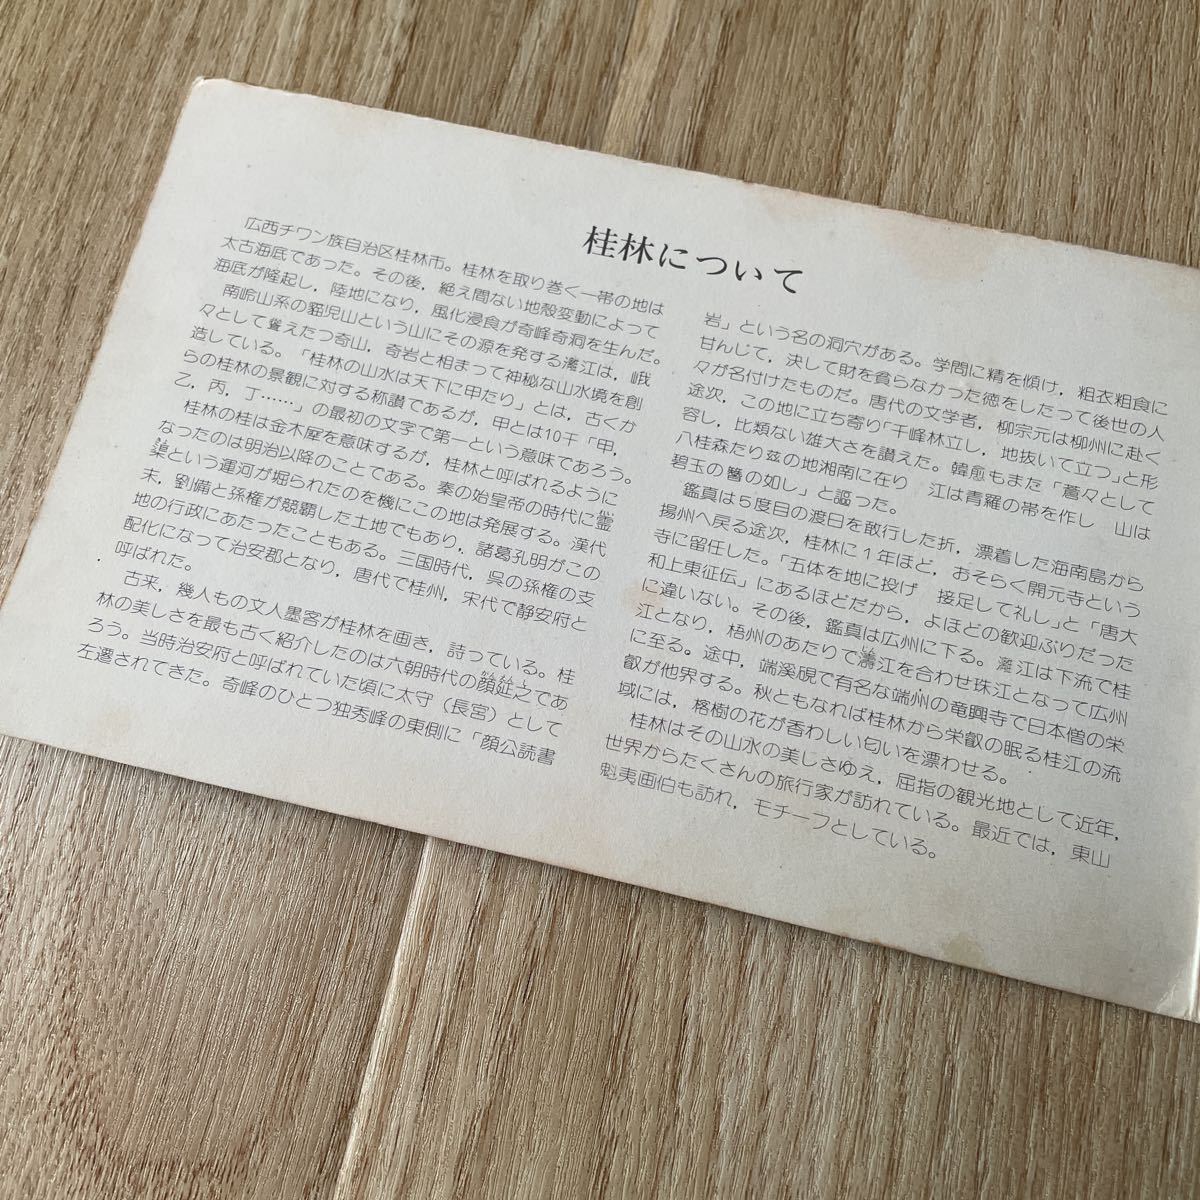 桂林について
広西チワン族自治区桂林市。桂林を取り巻く一帯の地は
太古海底であった。その後，絶え間ない地殻変動によって
海底が隆起し，陸地になり，風化浸食が奇峰奇洞を生んだ。
南岭山系の貓児山という山にその源を発する灕江は，峨
々として聳えたつ奇山，奇岩と相まって神秘な山水境を創
造している。「桂林の山水は天下に甲たり」とは，古くか
らの桂林の景観に対する称讃であるが，甲とは10干「甲，
乙，丙，丁……」の最初の文字で第一という意味であろう。
桂林の桂は金木犀を意味するが，桂林と呼ばれるように
なったのは明治以降のことである。秦の始皇帝の時代に霊
渠という運河が掘られたのを機にこの地は発展する。漢代
末，劉備と孫権が競覇した土地でもあり，諸葛孔明がこの
地の行政にあたったこともある。三国時代，呉の孫権の支
配化になって治安郡となり，唐代で桂州，宋代で静安府と
呼ばれた。
古来，幾人もの文人墨客が桂林を画き，詩っている。桂
林の美しさを最も古く紹介したのは六朝時代の顔延之であ
ろう。当時治安府と呼ばれていた頃に太守（長官）として
左遷されてきた。奇峰のひとつ独秀峰の東側に「顔公読書
岩」という名の洞穴がある。学問に精を傾け，粗衣粗食に
甘んじて，決して財を貪らなかった徳をしたって後世の人
々が名付けたものだ。唐代の文学者，柳宗元は柳州に赴く
途次，この地に立ち寄り「千峰林立し，地抜いて立つ」と形
容し，比類ない雄大さを讃えた。韓愈もまた「蒼々として
八桂森たり玆の地湘南に在り　江は青羅の帯を作し　山は
碧玉の簪の如し」と謳った。
鑑真は5度目の渡日を敢行した折，漂着した海南島から
揚州へ戻る途次，桂林に1年ほど，おそらく開元寺という
寺に留任した。「五体を地に投げ　接足して礼し」と「唐大
和上東征伝」にあるほどだから，よほどの歓迎ぶりだった
に違いない。その後，鑑真は広州に下る。灕江は下流で桂
江となり，梧州のあたりで潯江を合わせ珠江となって広州
に至る。途中，端溪硯で有名な端州の竜興寺で日本僧の栄
叡が他界する。秋ともなれば桂林から栄叡の眠る桂江の流
域には，榕樹の花が香わしい匂いを漂わせる。
桂林はその山水の美しさゆえ，屈指の観光地として近年，
世界からたくさんの旅行家が訪れている。最近では，東山
魁夷画伯も訪れ，モチーフとしている。